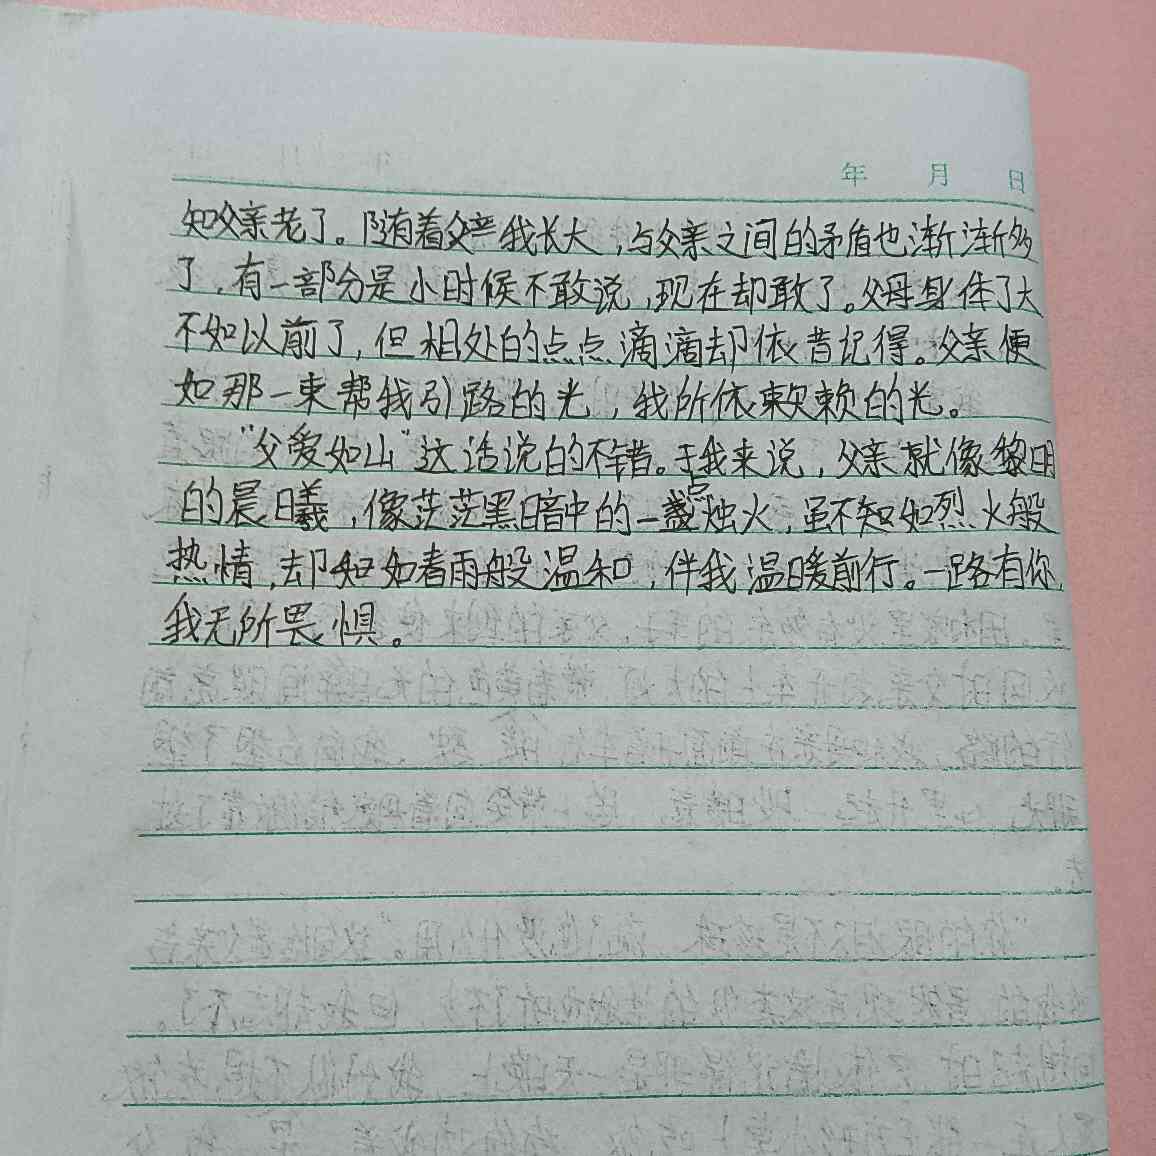 年 月 日
知父亲老了。随着我长大,与父亲之间的矛盾也渐渐多
了,有一部分是小时候不敢说,现在却敢了。父母身体大
不如以前了,但相处的点点滴滴却依昔记得。父亲便
如那一束帮我引路的光,我所依赖的光。
"父爱如山"这话说的不错。于我来说,父亲就像黎明
的晨曦,像茫茫黑暗中的一盏点烛火,虽不如烈火般
热情,却如春雨般温和,伴我温暖前行。一路有你,
我无所畏惧。